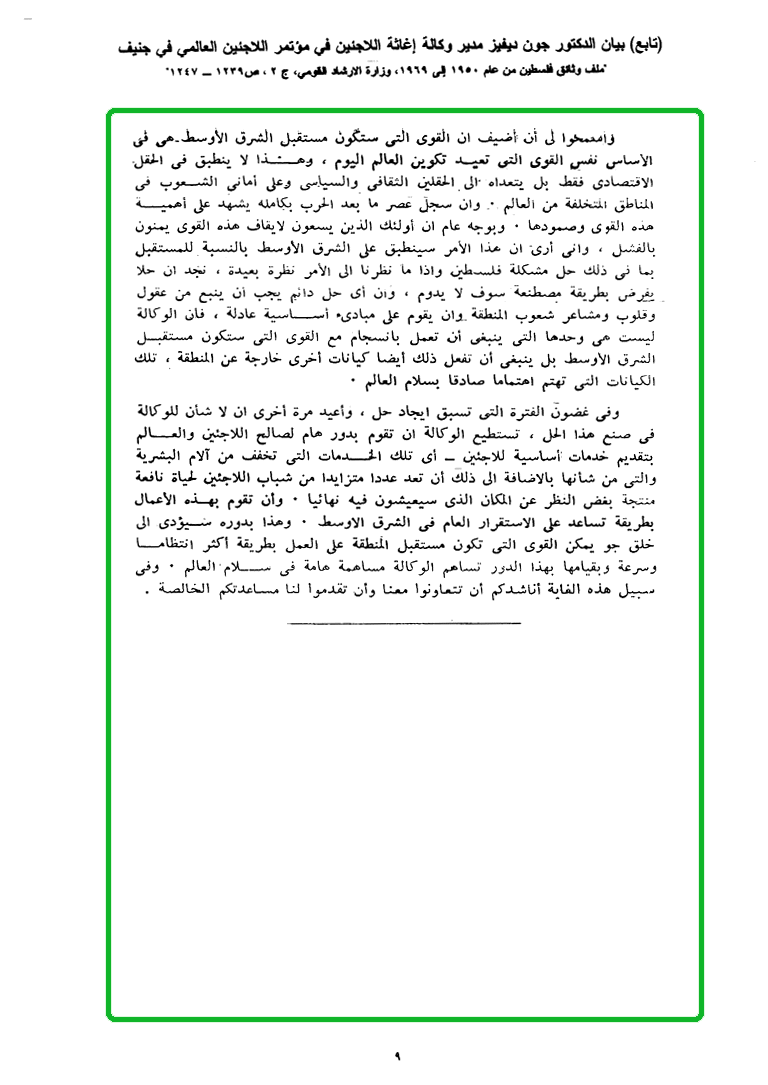 (تابع) بيان الدكتور جون ديفيز مدير وكالة إغاثة اللاجئين في مؤتمر اللاجئين العالمي في جنيف
"ملف وثائق فلسطين من عام ١٩٥٠ إلى ١٩٦٩، وزارة الارشاد القومي، ج ٢، ص ١٢٣٩ ــ ١٢٤٧"
واسمحوا لى أن أضيف ان القوى التى ستكون مستقبل الشرق الأوسط هى فى
الأساس نفس القوى التى تعيد تكوين العالم اليوم ، وهــذا لا ينطبق فى الحقل
الاقتصادى فقط بل يتعداه الى الحقلين الثقافى والسياسى وعلى أمانى الشـعوب فى
المناطق المتخلفة من العالم ٠ وان سجل عصر ما بعد الحرب بكامله يشهد على أهميـــة
هذه القوى وصمودها ٠ وبوجه عام ان أولئك الذين يسعون لايقاف هذه القوى يمنون
بالفشل ، وانى أرى ان هذا الأمر سينطبق على الشرق الأوسط بالنسبة للمستقبل
بما فى ذلك حل مشكلة فلسطين واذا ما نظرنا الى الأمر نظرة بعيدة ، نجد ان حلا
يفرض بطريقة مصطنعة سوف لا يدوم ، وان أى حل دائم يجب أن ينبع من عقول
وقلوب ومشاعر شعوب المنطقة وان يقوم على مبادىء أســاسية عادلة ، فان الوكالة
ليست هى وحدها التى ينبغى أن تعمل بانسجام مع القوى التى ستكون مستقبـل
الشرق الأوسط بل ينبغى أن تفعل ذلك أيضا كيانات أخرى خارجة عن المنطقة ، تلك
الكيانات التى تهتم اهتماما صادقا بسلام العالم ٠
وفى غضون الفترة التى تسبق ايجاد حل ، وأعيد مرة أخرى ان لا شأن للوكالة
فى صنع هذا الحل ، تستطيع الوكالة ان تقوم بدور هام لصالح اللاجئين والعــالم
بتقديم خدمات أساسية للاجئين ــ أى تلك الخــدمات التى تخفف من آلام البشرية
والتى من شأنها بالاضافة الى ذلك أن تعد عددا متزايدا من شباب اللاجئين لحياة نافعة
منتجة بغض النظر عن المكان الذى سيعيشون فيه نهائيا ٠ وأن تقوم بهـذه الأعمال
بطريقة تساعد على الاستقرار العام فى الشرق الاوسط ٠ وهذا بدوره سـيؤدى الى
خلق جو يمكن القوى التى تكون مستقبل المنطقة على العمل بطريقة أكثر انتظامــا
وسرعة وبقيامها بهذا الدور تساهم الوكالة مساهمة هامة فى ســلام العالم ٠ وفى
سبيل هذه الغاية أناشدكم أن تتعاونوا معنا وأن تقدموا لنا مساعدتكم الخالصة .
٩